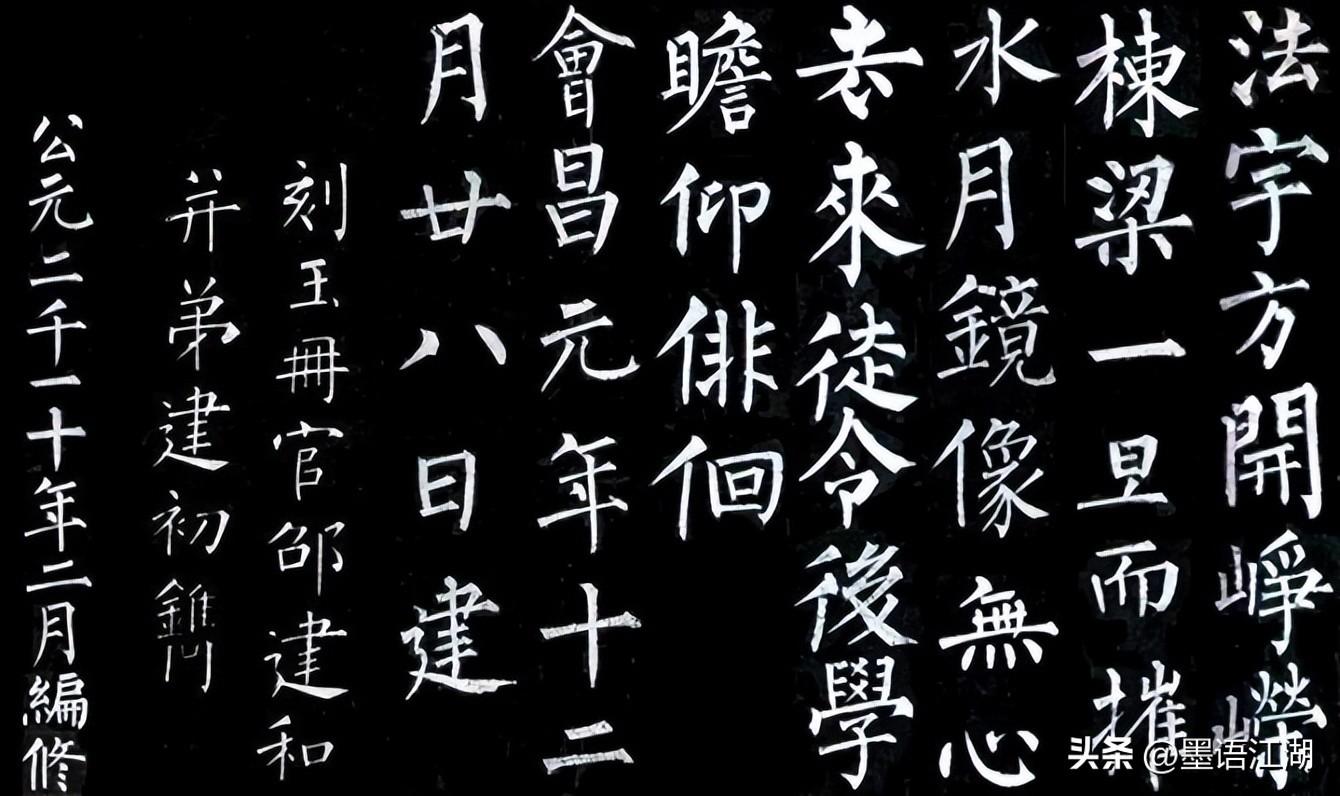 法宇方開崢嶸
棟梁一旦而摧
水月鏡像無心
去來徒令後學
瞻仰俳徊
會昌元年十二
月廿八日建
刻玉冊官邵建和
并弟建初鐫
公元二千一十年二月編修
头条 @墨语江湖